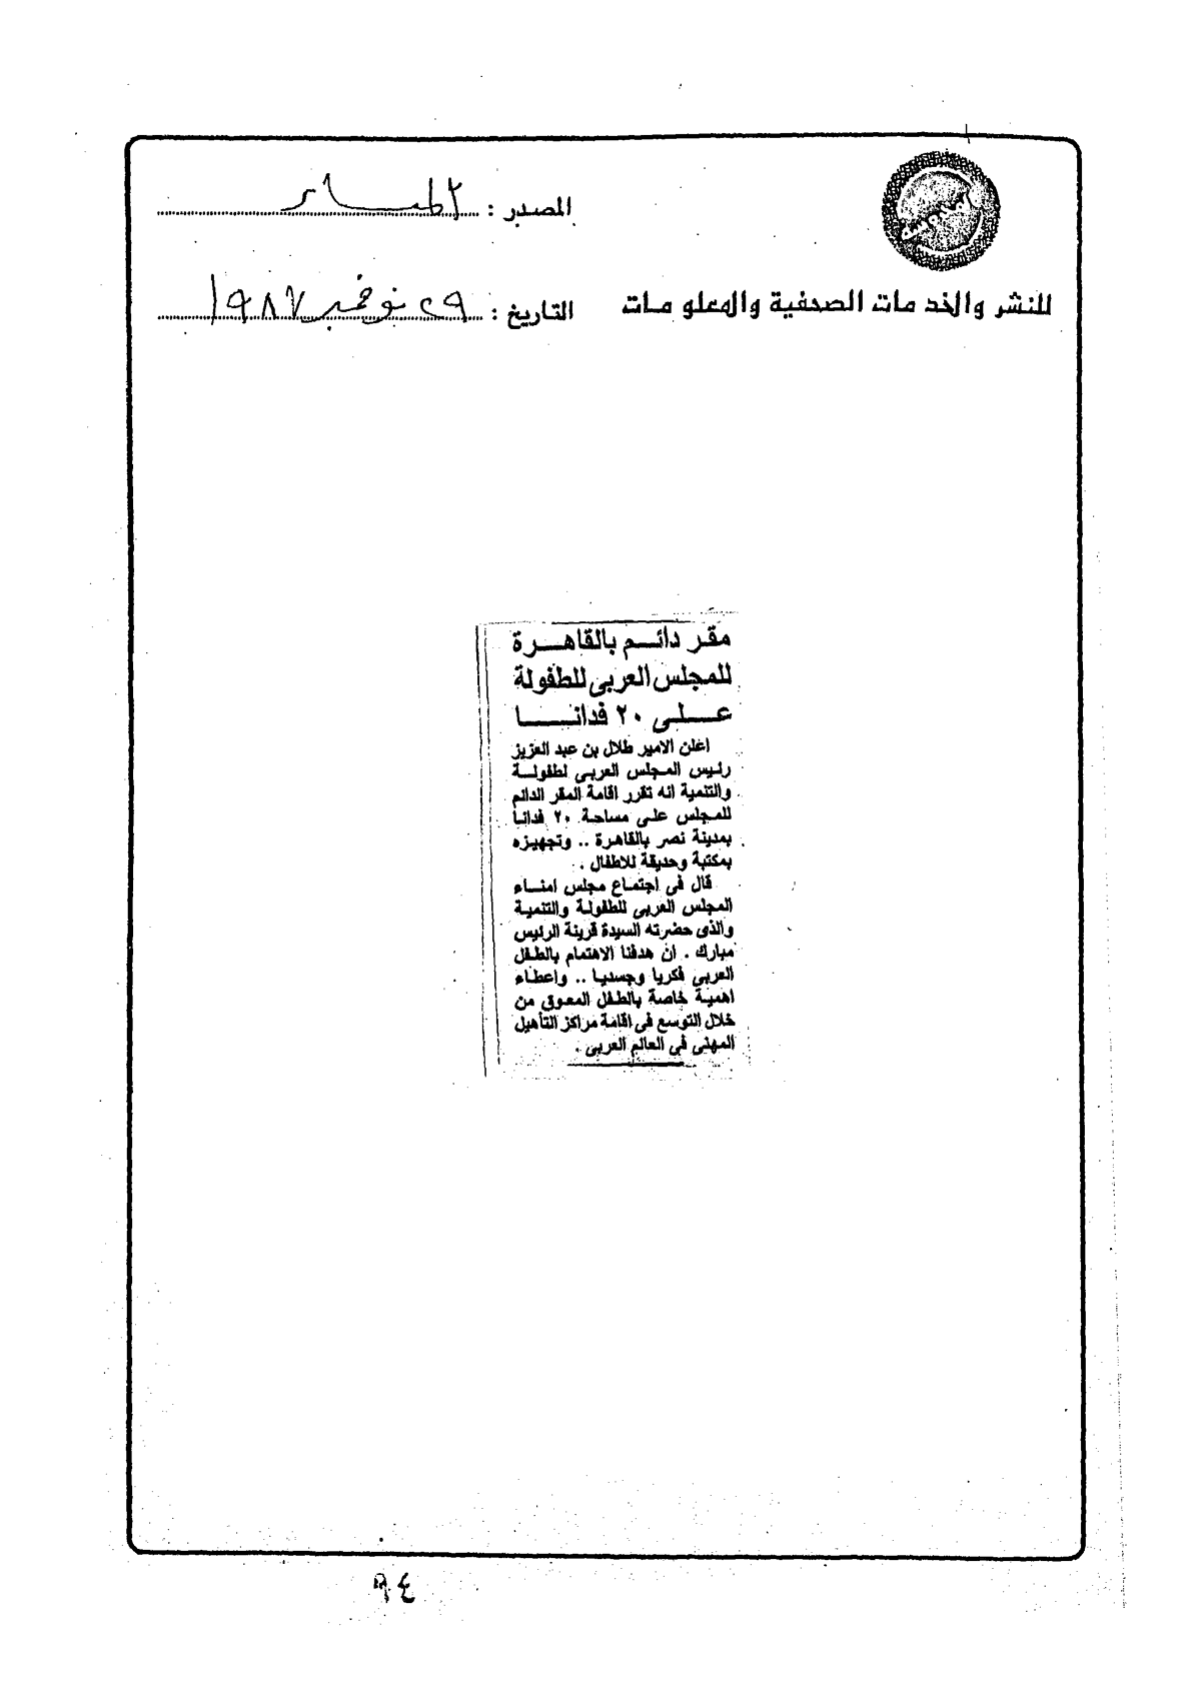 المصدر : المساء
للنشر والخدمات الصحفية والمعلومات
التاريخ : ٢٩ نوفمبر ١٩٨٧
مقر دائم بالقاهرة
للمجلس العربى للطفولة
على ٢٠ فدانا
اعلن الامير طلال بن عبد العزيز
رئيس المجلس العربى لطفولة
والتنمية انه تقرر اقامة المقر الدائم
للمجلس على مساحة ٢٠ فدانا
بمدينة نصر بالقاهرة .. وتجهيزه
بمكتبة وحديقة للاطفال .
قال فى اجتماع مجلس امناء
المجلس العربى للطفولة والتنمية
والذى حضرته السيدة قرينة الرئيس
مبارك . ان هدفنا الاهتمام بالطفل
العربى فكريا وجسديا .. واعطاء
اهمية خاصة بالطفل المعوق من
خلال التوسع فى اقامة مراكز التأهيل
المهنى فى العالم العربى .
٩٤